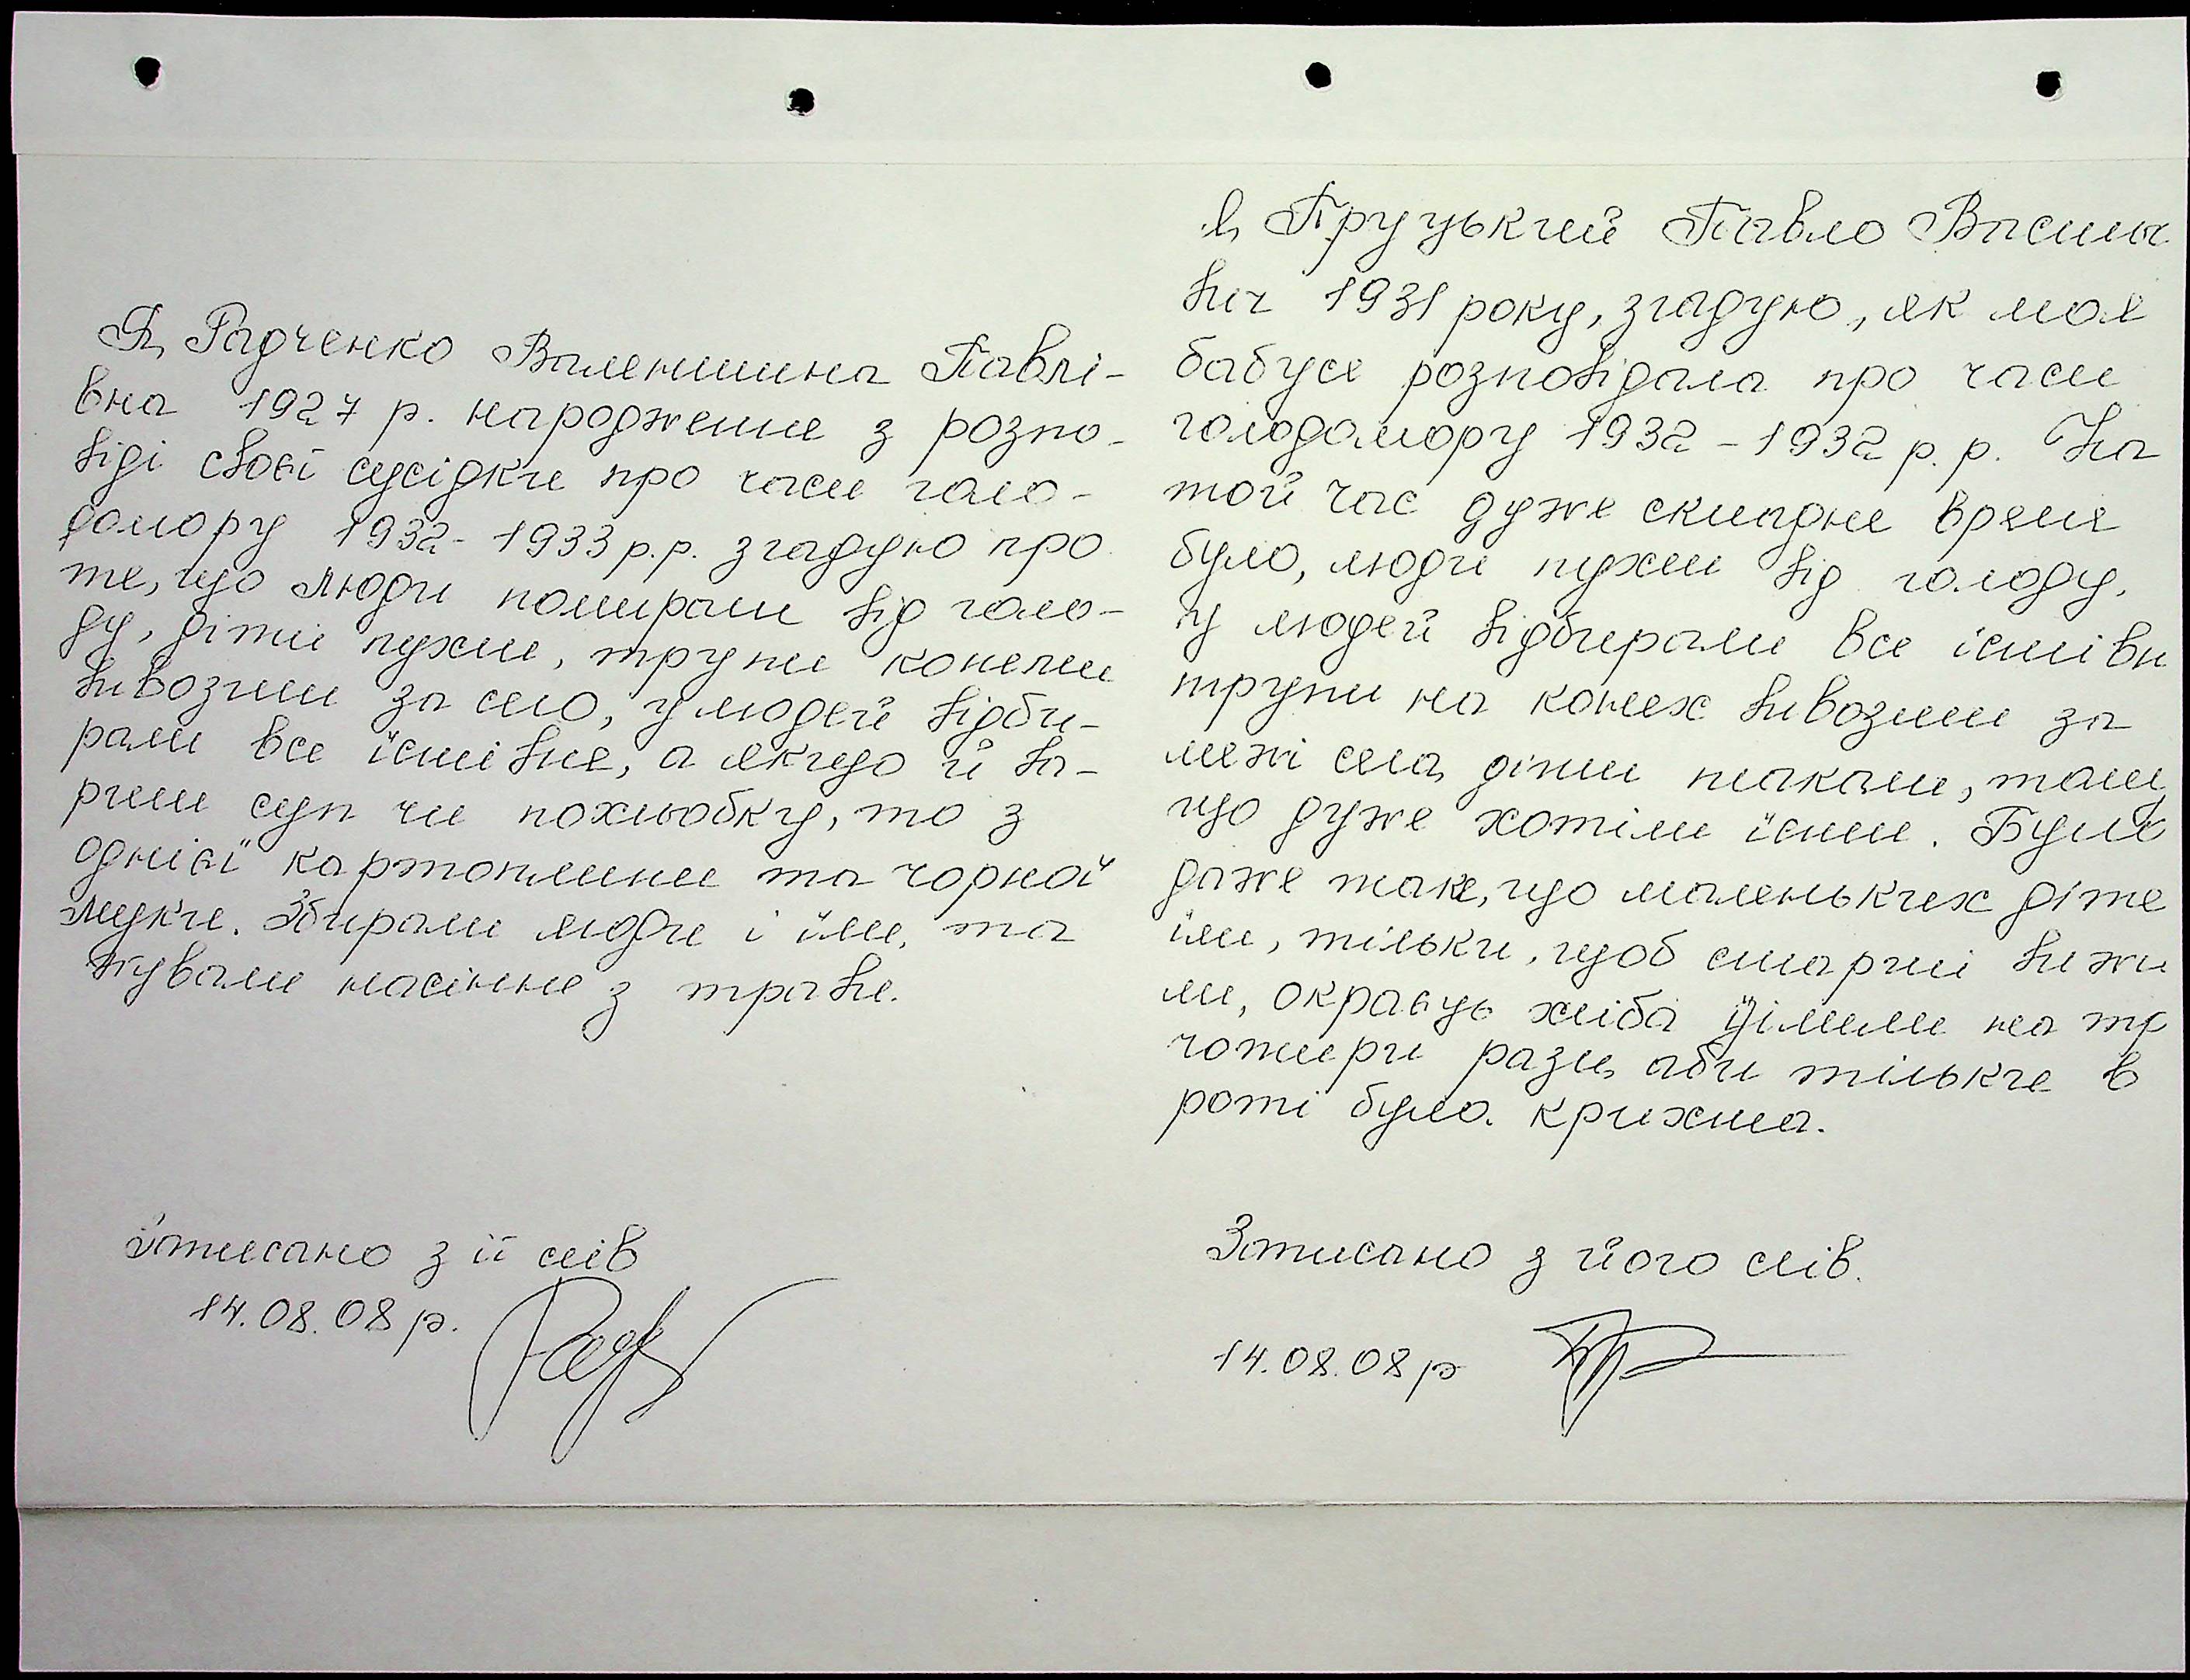 Я, Радченко Валентина Павлі-
вна 1927 р. народження з розпо-
віді своєї сусідки про часи голо-
домору 1932-1933 р.р. згадую про
те, що люди помирали від голо-
ду, діти пухли, трупи конями
вивозили за село, у людей відби-
рали все їстівне, а якщо й ва-
рили суп чи похльобку, то з
однієї картоплини та чорної
муки. Збирали люди і їли, та
жували насіння з трави.
Записано з її слів
14.08.08 р.
Я, Пруцький Павло Василь
вич 1931 року, згадую, як моя
бабуся розповідала про часи
голодомору 1932-1932 р.р. На
той час дуже складне время
було, люди пухли від голоду,
у людей відбирали все їстівн
трупи на конях вивозили за
межі села, діти плакали, тому
що дуже хотіли їсти. Було
даже таке, що маленьких діте
їли, тільки, щоб старші вижи
ли, окраєць хліба ділили на тр
чотири рази, аби тільки в
роті було. крихта.
Записано з його слів.
14.08.08 р